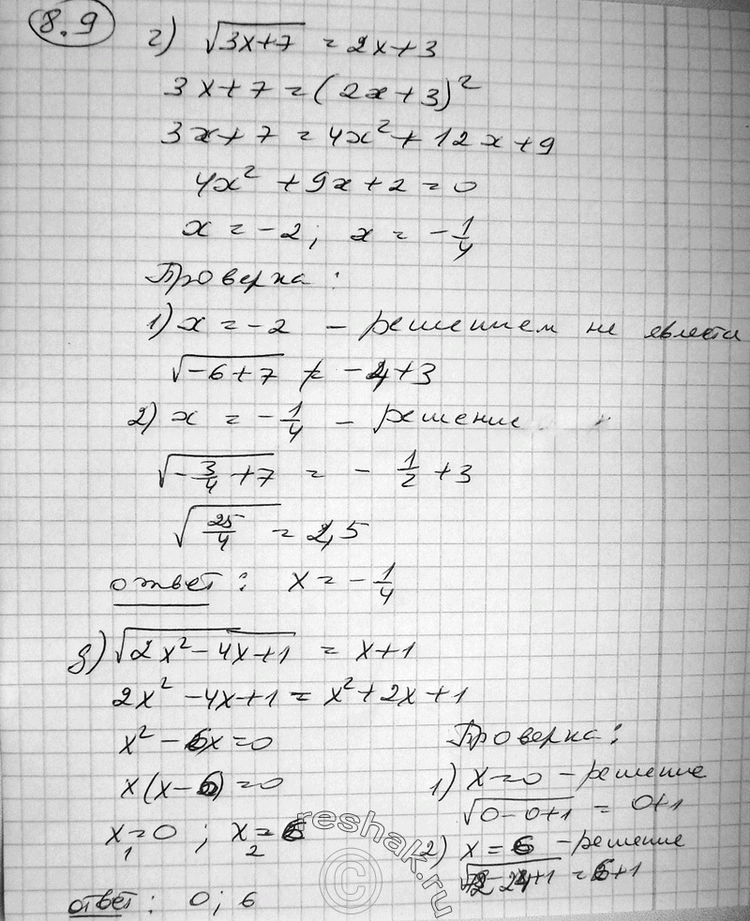 8.9
г) √(3x+7) = 2x+3
3x+7 = (2x+3)²
3x+7 = 4x²+12x+9
4x²+9x+2=0
x = -2; x = -1/4
Проверка:
1) x = -2 - решением не явлется
√(-6+7) ≠ -4+3
2) x = -1/4 - решение
√(-3/4+7) = -1/2+3
√(25/4) = 2,5
ответ: x = -1/4
д) √(2x²-4x+1) = x+1
2x²-4x+1 = x²+2x+1
x²-6x=0
x(x-6)=0
x₁=0; x₂=6
ответ: 0; 6
Проверка:
1) x=0 - решение
√(0-0+1) = 0+1
2) x=6 - решение
= 6+1
reshak.ru